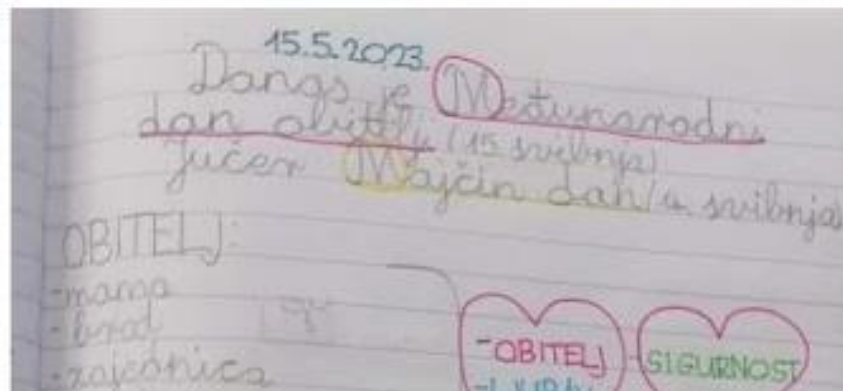 15.5.2023.
Danas je Međunarodni
dan obitelji (15 svibnja)
Jučer Majčin dan (u svibnja)
OBITELJ:
-mama
-brat
-zajednica
-OBITELJ
SIGURNOST